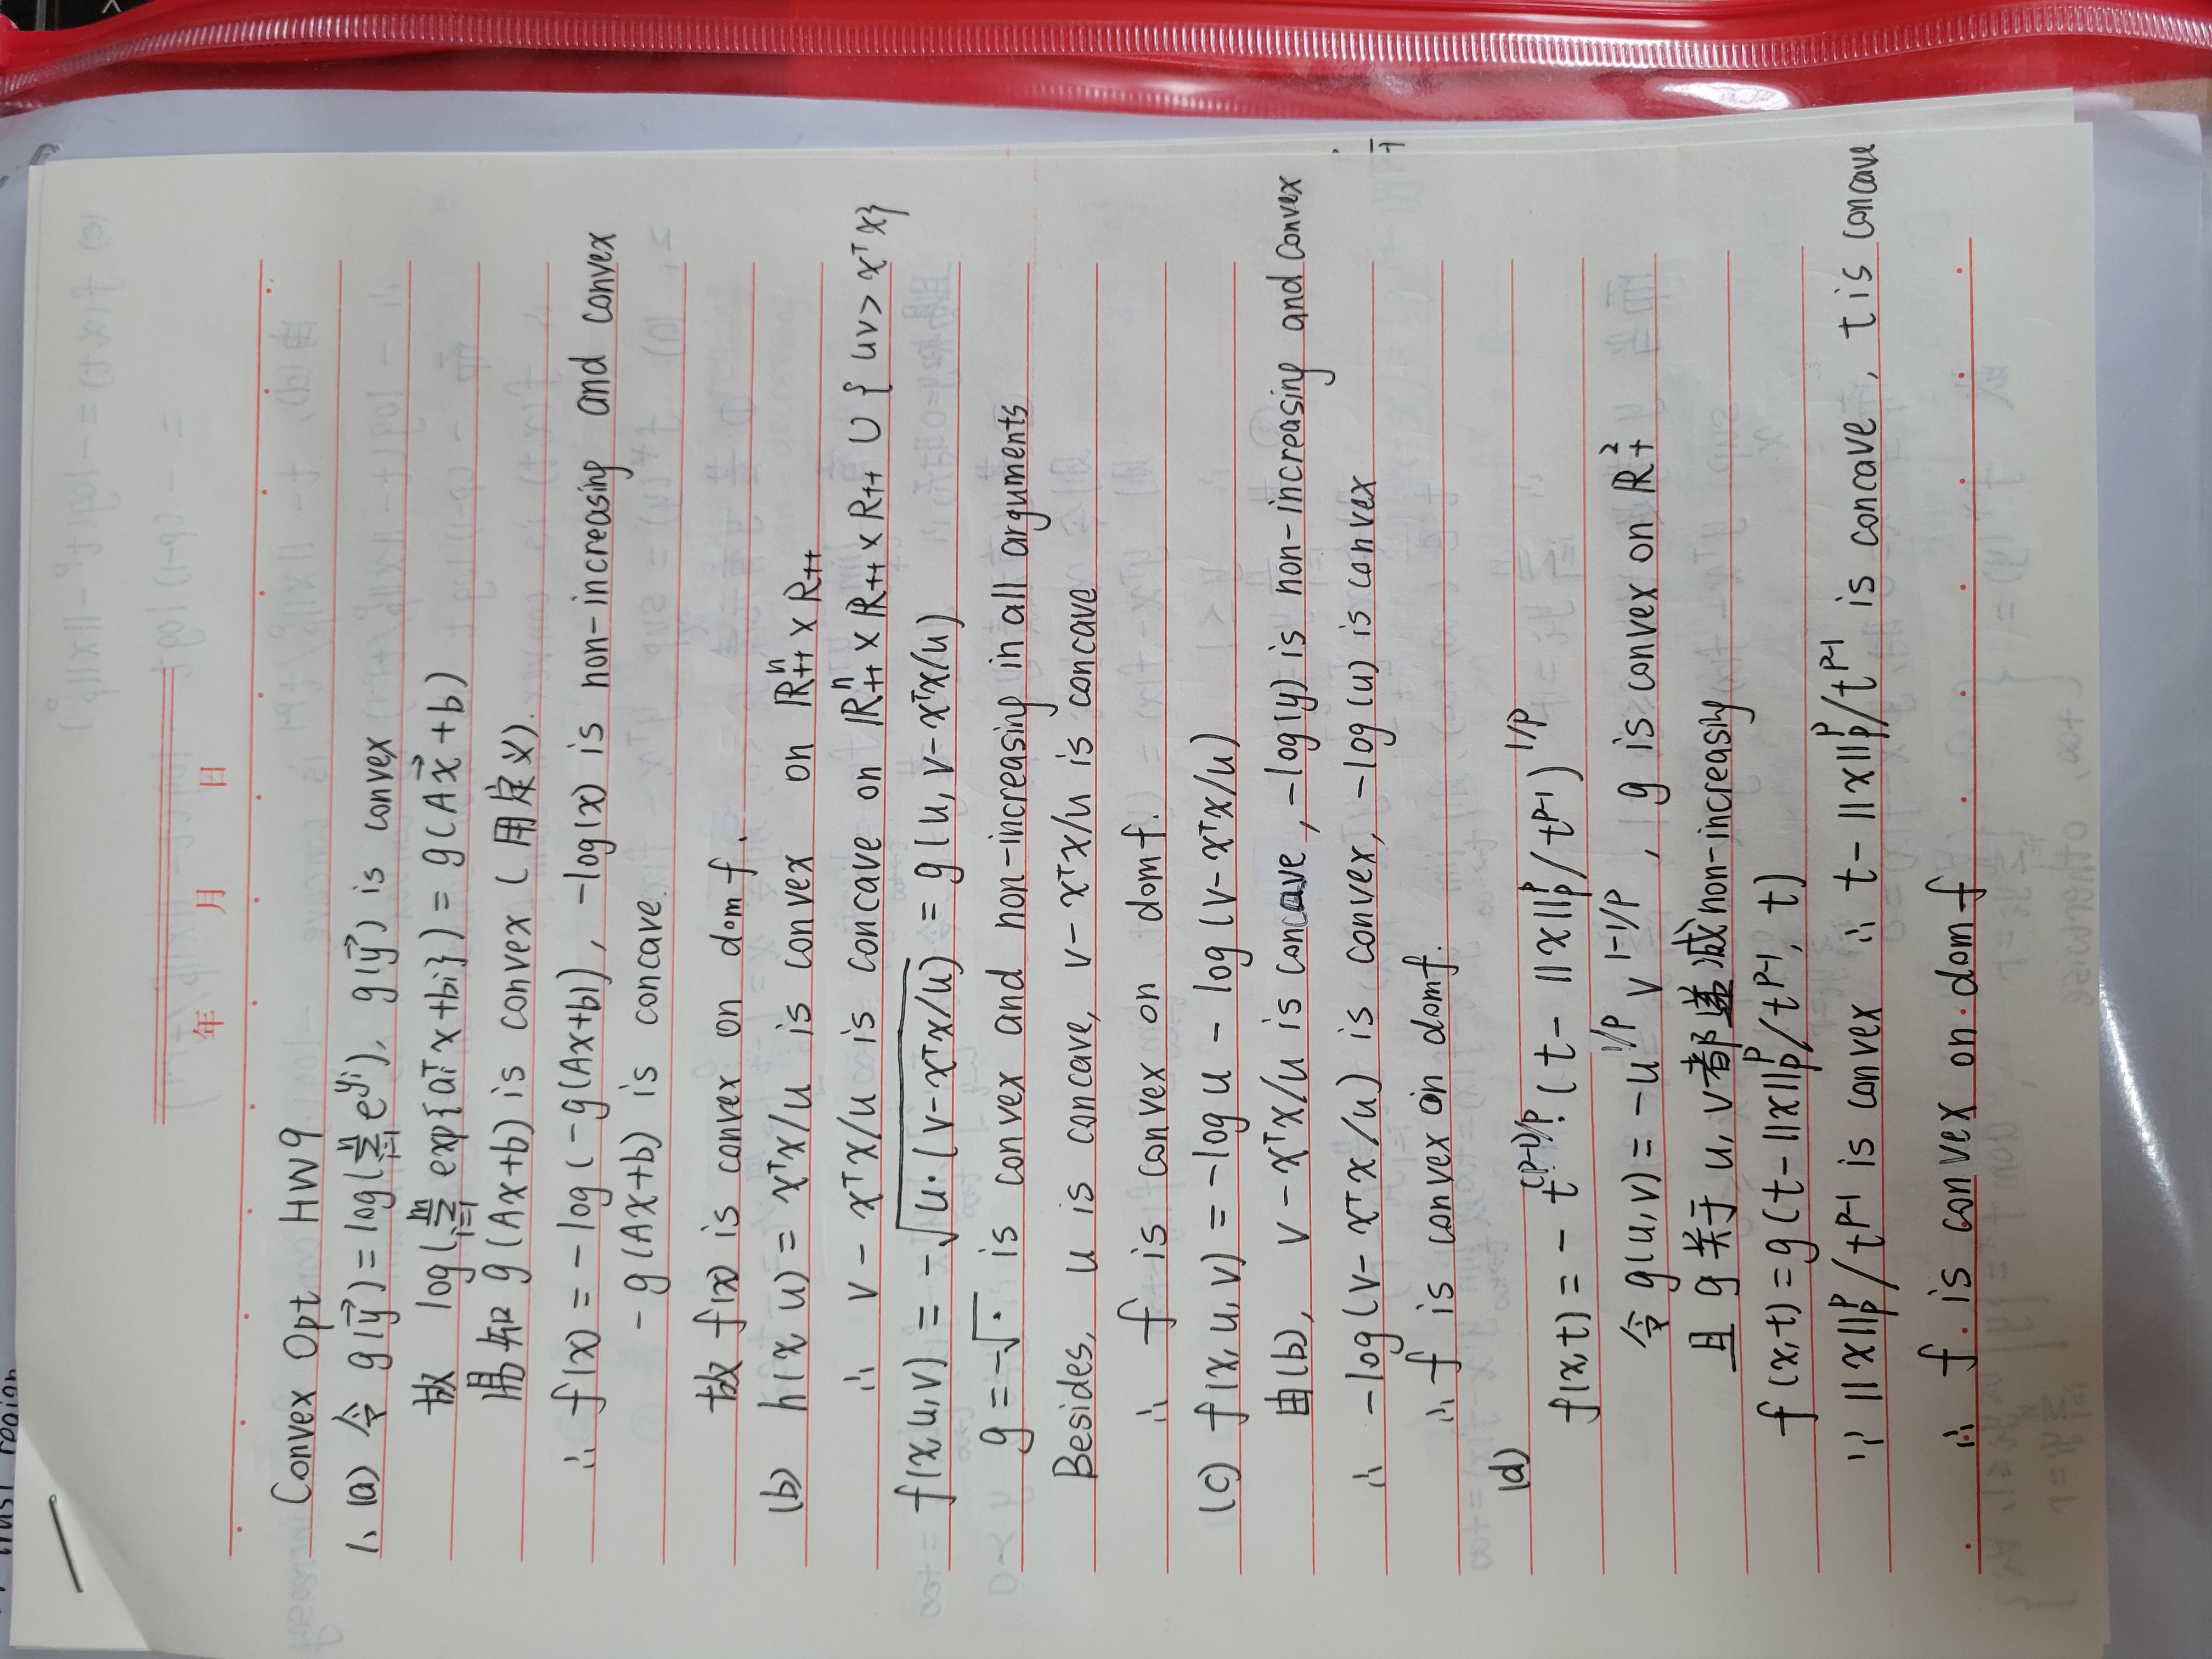 trust region
年 月 日
Convex Opt HW9
1、(a) 令 g(y⃗) = log(∑ⁿᵢ₌₁ e^{yᵢ}), g(y⃗) is convex
故 log(∑ᵐᵢ₌₁ exp{aᵢᵀx+bᵢ}) = g(Ax⃗+b)
易知 g(Ax+b) is convex (用定义).
∴ f(x) = -log(-g(Ax+b)), -log(x) is non-increasing and convex
-g(Ax+b) is concave.
故 f(x) is convex on domf.
(b) h(x, u) = xᵀx/u is convex on ℝⁿ₊₊ × R₊₊
∴ v - xᵀx/u is concave on ℝⁿ₊₊ × R₊₊ × R₊₊ ∪ { uv > xᵀx}
f(x,u,v) = -√(u·(v-xᵀx/u)) = g(u, v-xᵀx/u)
g = -√· is convex and non-increasing in all arguments
Besides, u is concave, v-xᵀx/u is concave
∴ f is convex on domf.
(c) f(x,u,v) = -log u - log(v-xᵀx/u)
由(b), v-xᵀx/u is concave, -log(y) is non-increasing and convex
∴ -log(v-xᵀx/u) is convex, -log(u) is convex
∴ f is convex on domf.
(d)
f(x,t) = - t^{(p-1)/p}·(t-||x||_p^p/t^{p-1})^{1/p}
令 g(u,v) = -u^{1/p} v^{1-1/p}, g is convex on ℝ²₊
且 g 关于 u, v 都递减 non-increasing
f(x,t) = g(t-||x||_p^p/t^{p-1}, t)
∵ ||x||_p^p/t^{p-1} is convex ∴ t-||x||_p^p/t^{p-1} is concave, t is concave
∴ f is convex on domf